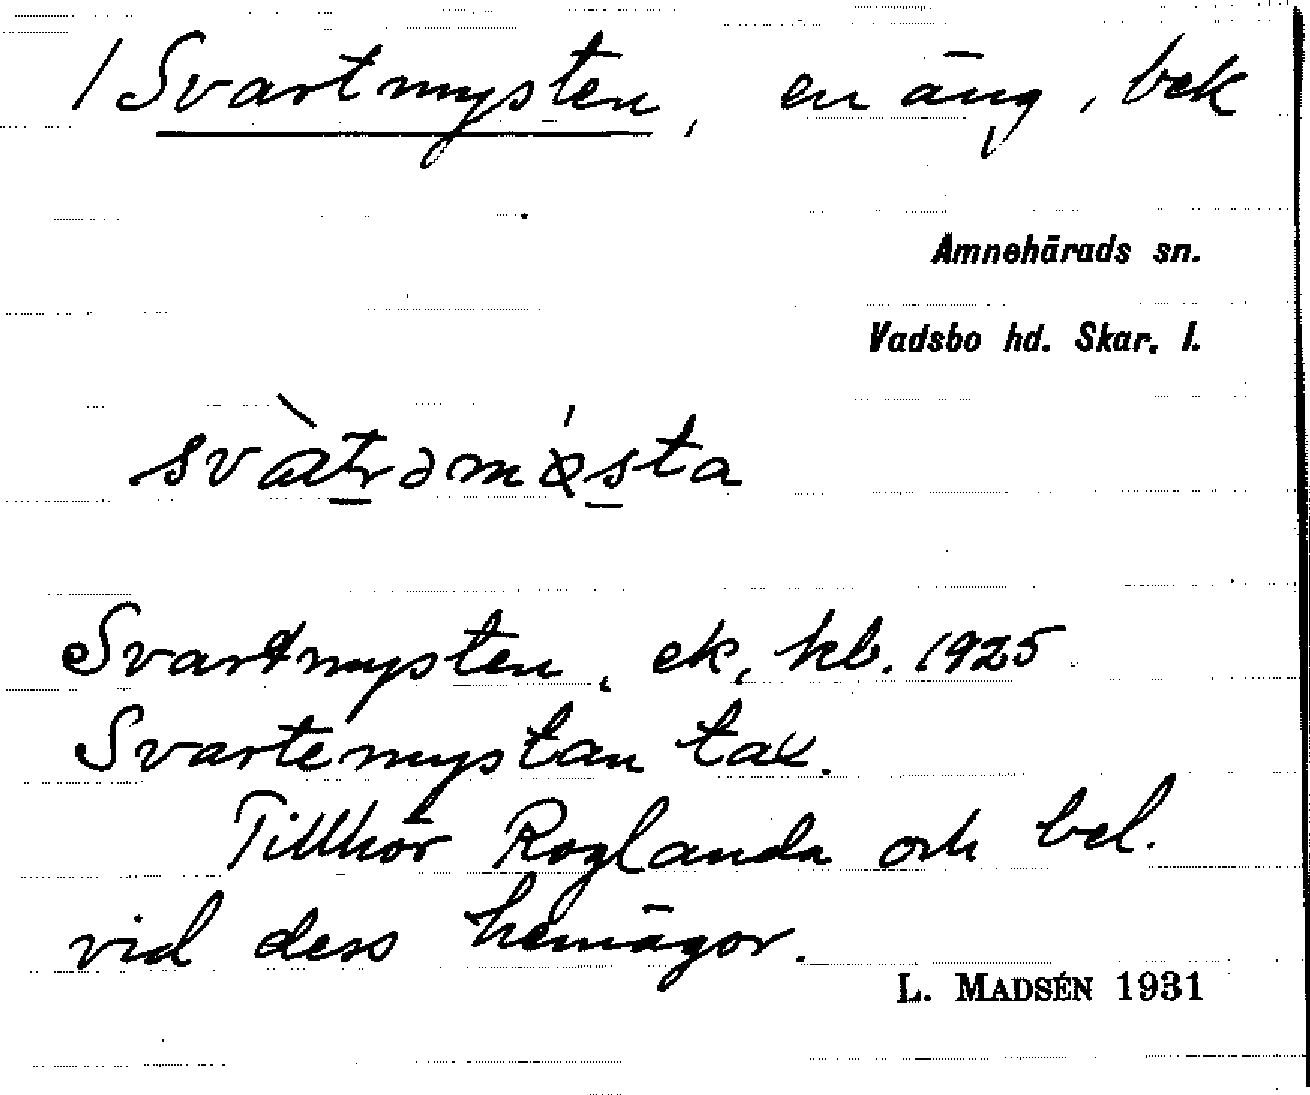 / Svartmysten, en äng, bek
Amnehärads sn.
Vadsbo hd. Skar. l.
svàtrəmǿsta
Svartmysten, ek, kb. 1925
Svartemystan tax.
Tillhör Roglanda och bel.
vid dess hemägor.
L. MADSÉN 1931